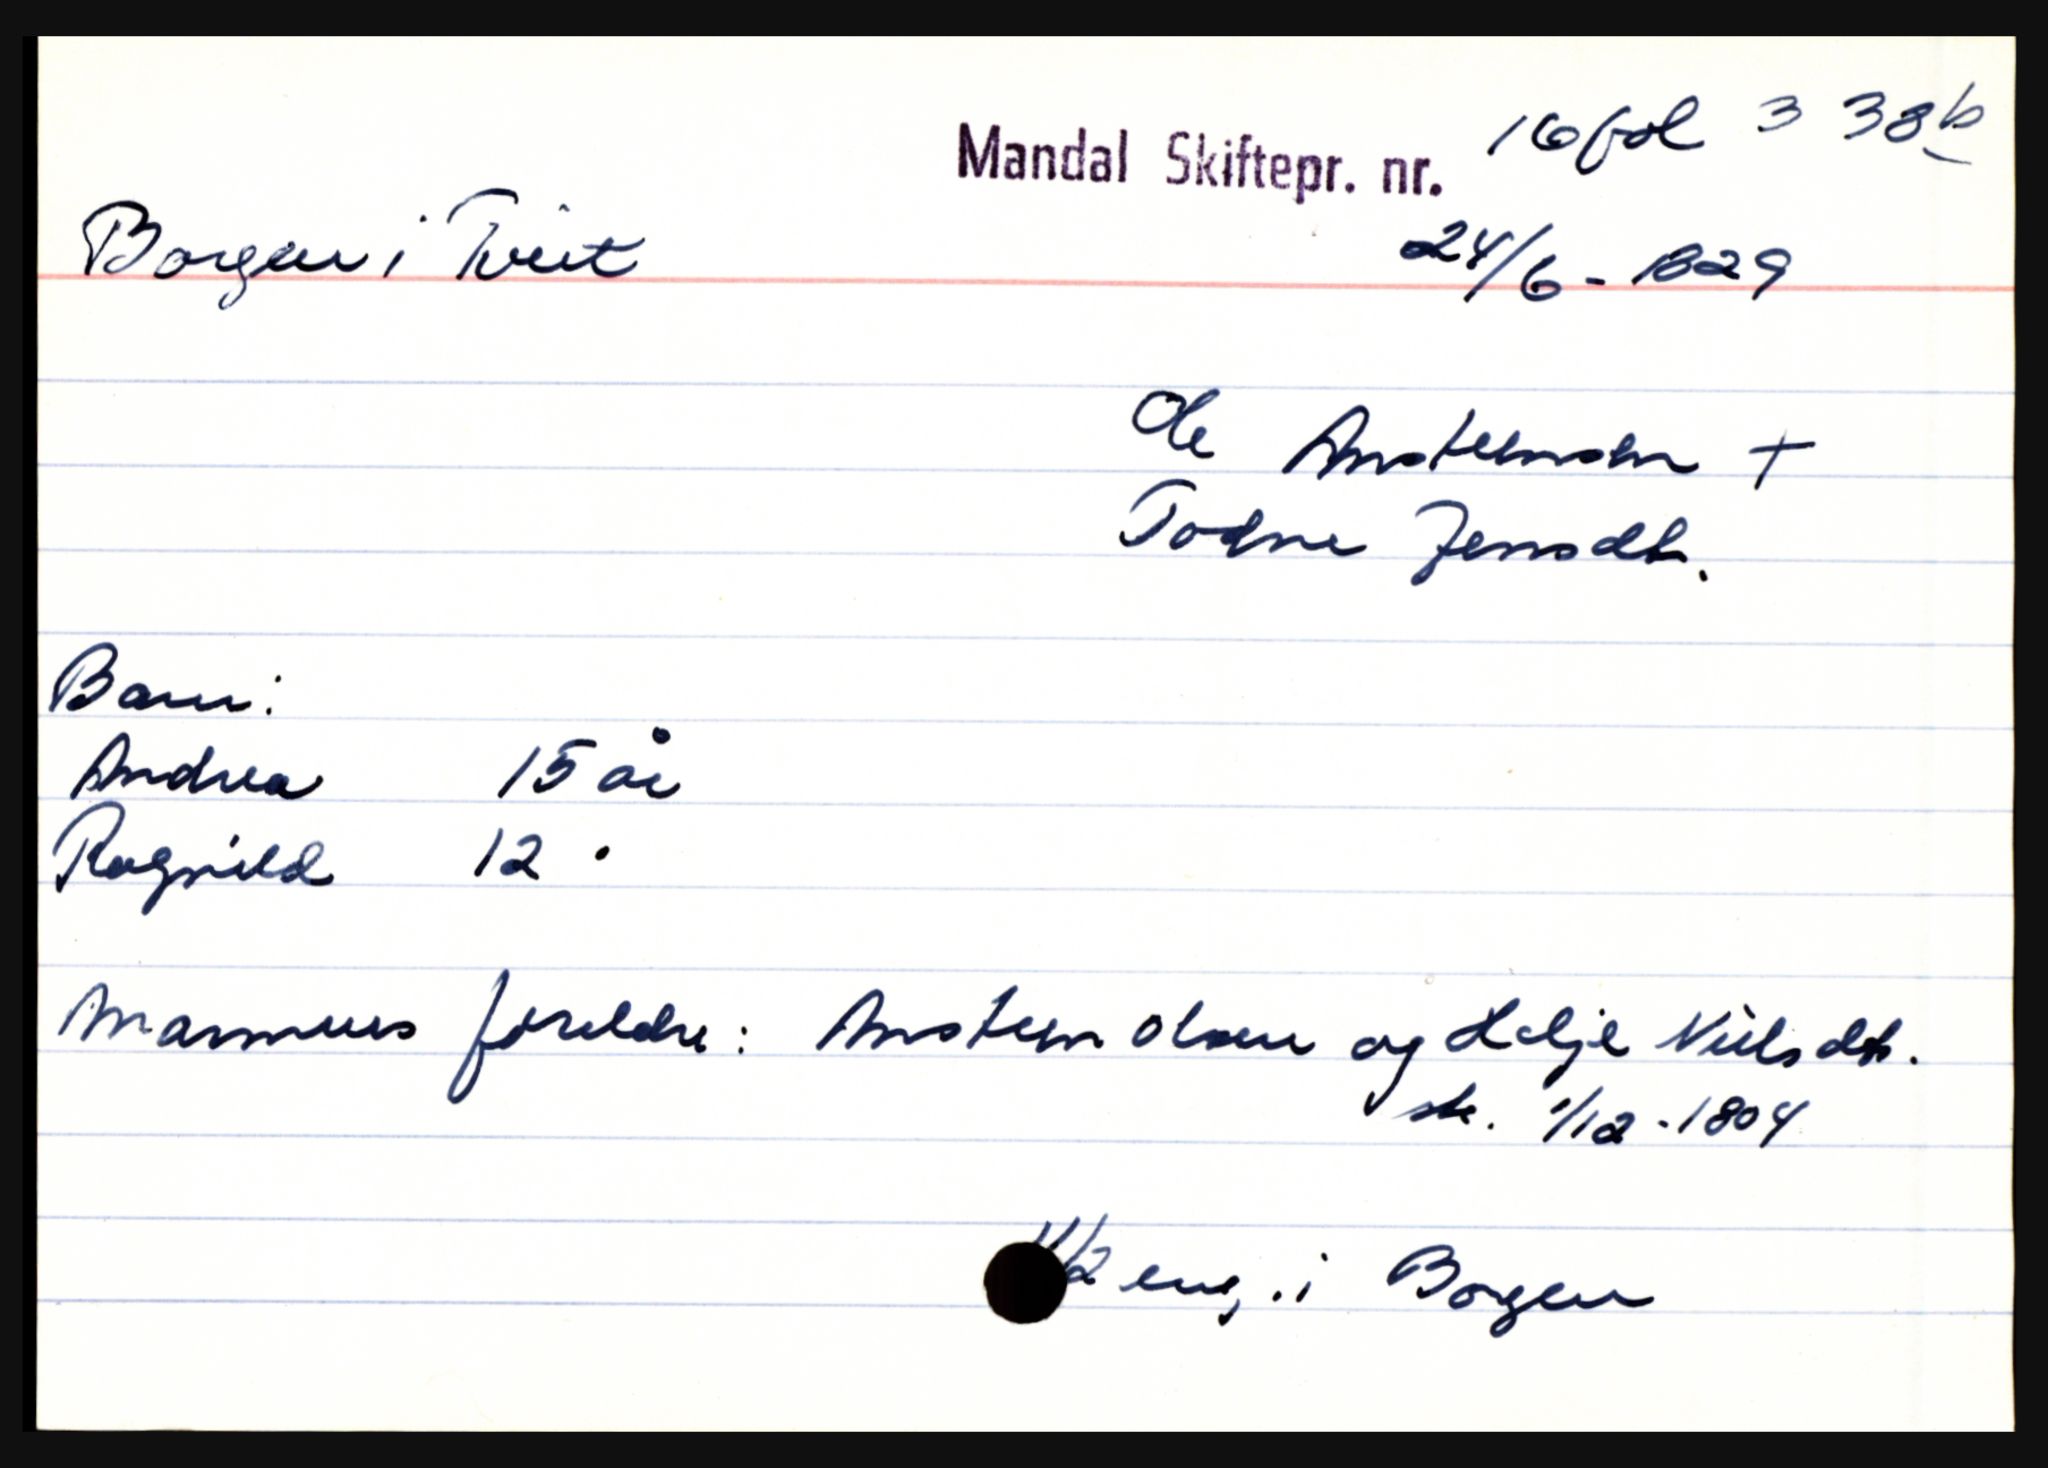 Mandal Skiftepr. nr. 16 fol 338b
Borgen i Tveit 24/6 - 1829
Ole Ansteinsen +
Todne Jensdtr.
Barn:
Andrea 15 år
Ragnild 12 "
Mannens foreldre: Anstein Olsen og Helje Nielsdtr.
sk. 1/12 - 1804
1/2 eng. i Borgen